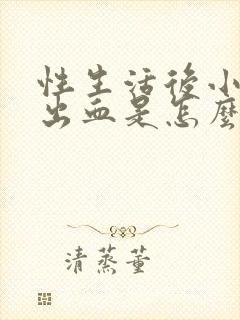 性生活後小
出血是怎麼
清蒸董